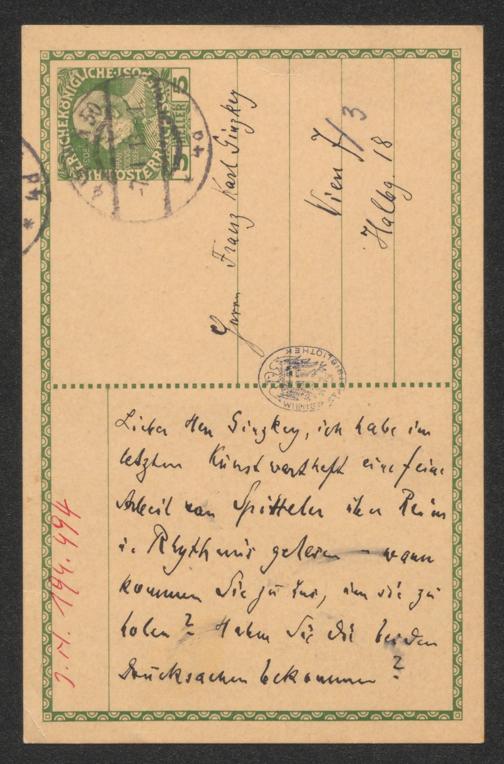 Herrn Franz Karl Ginzkey
Wien 7/3
Halbg. 18
Lieber Herr Ginzkey, ich habe im
letzten Kunstwartheft eine feine
Arbeit von Spitteler über Reim
u. Rhythmus gelesen – wann
kommen Sie zu uns, um sie zu
holen? Haben Sie die beiden
Drucksachen bekommen?
J. N. 194.494
5 HELLER 5
BIBLIOTHEK